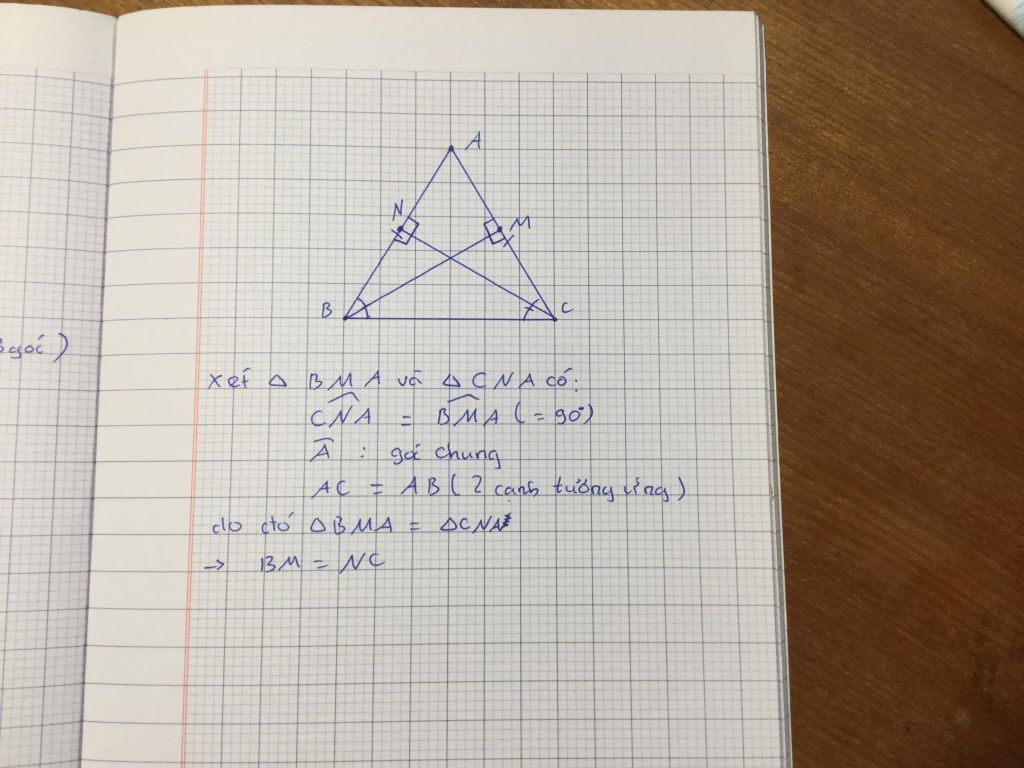 A
N
M
B
C
3 góc)
xét Δ BMA và Δ CNA có:
CNA = BMA (= 90°)
A : góc chung
AC = AB ( 2 cạnh tương ứng )
do đó ΔBMA = ΔCNA
→ BM = NC